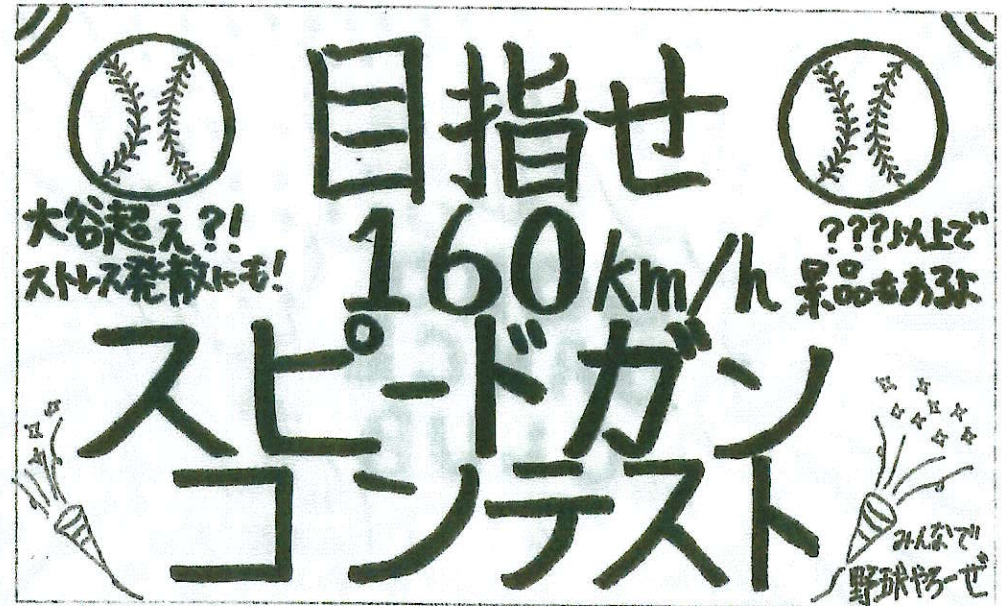 目指せ
大谷超え?!
ストレス発散にも!
160km/h
???以上で
景品もあるよ
スピードガン
コンテスト
みんなで
野球やろーぜ